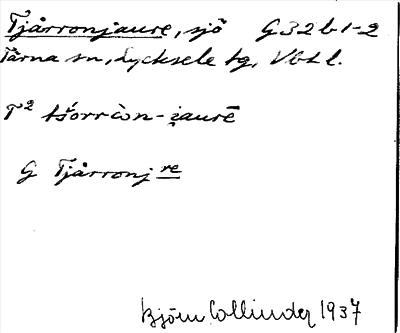 Tjårronjaure, sjö G32b1-2
Tärna sn, Lycksele tg, Vbtl.
T² tśorròn-i̯aurē
G Tjårronj re
Björn Collinder 1937